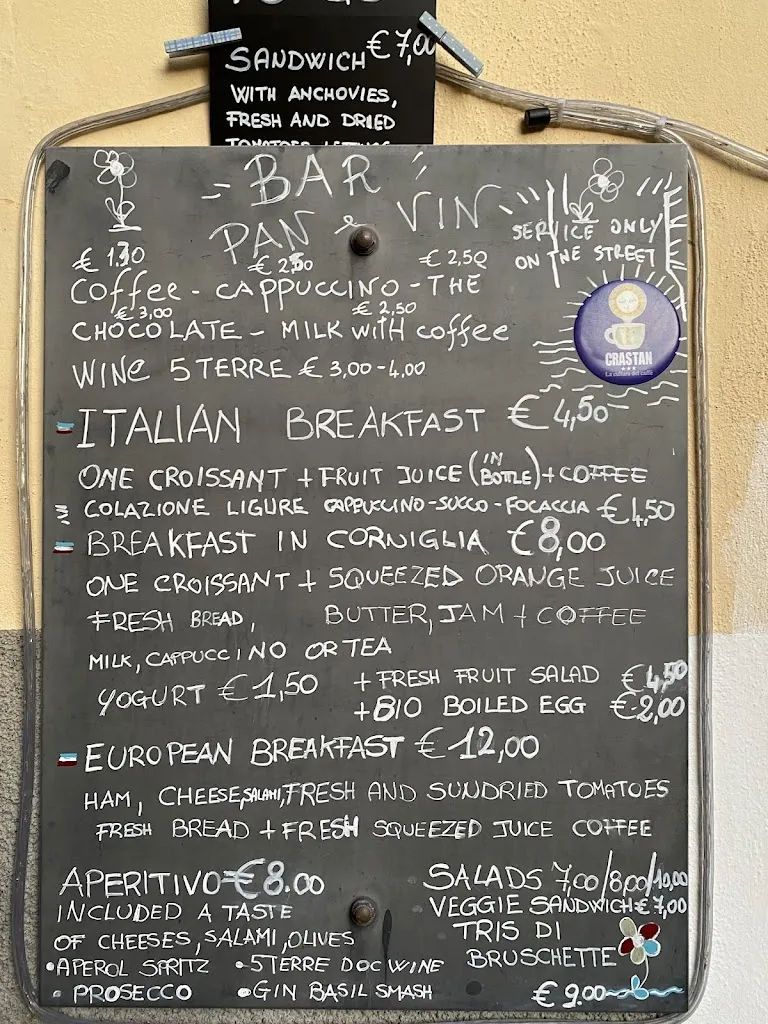 SANDWICH € 7,00
WITH ANCHOVIES,
FRESH AND DRIED
- BAR -
PAN e VIN
SERVICE ONLY
ON THE STREET
€ 1,30 € 2,50 € 2,50
Coffee - CAPPUCCINO - THE
€ 3,00 € 2,50
CHOCOLATE - MILK WITH coffee
WINE 5 TERRE € 3,00 - 4,00
CRASTAN
La cultura del caffè
ITALIAN BREAKFAST € 4,50
ONE CROISSANT + FRUIT JUICE (IN BOTTLE) + COFFEE
COLAZIONE LIGURE CAPPUCCINO - SUCCO - FOCACCIA € 4,50
BREAKFAST IN CORNIGLIA € 8,00
ONE CROISSANT + SQUEEZED ORANGE JUICE
FRESH BREAD, BUTTER, JAM + COFFEE
MILK, CAPPUCCINO OR TEA
YOGURT € 1,50 + FRESH FRUIT SALAD € 4,50
+ BIO BOILED EGG € 2,00
EUROPEAN BREAKFAST € 12,00
HAM, CHEESE, SALAMI, FRESH AND SUNDRIED TOMATOES
FRESH BREAD + FRESH SQUEEZED JUICE COFFEE
APERITIVO € 8.00
INCLUDED A TASTE
OF CHEESES, SALAMI, OLIVES
• APEROL SPRITZ • 5 TERRE DOC WINE
• PROSECCO • GIN BASIL SMASH
SALADS 7,00/8,00/10,00
VEGGIE SANDWICH € 7,00
TRIS DI
BRUSCHETTE
€ 9.00